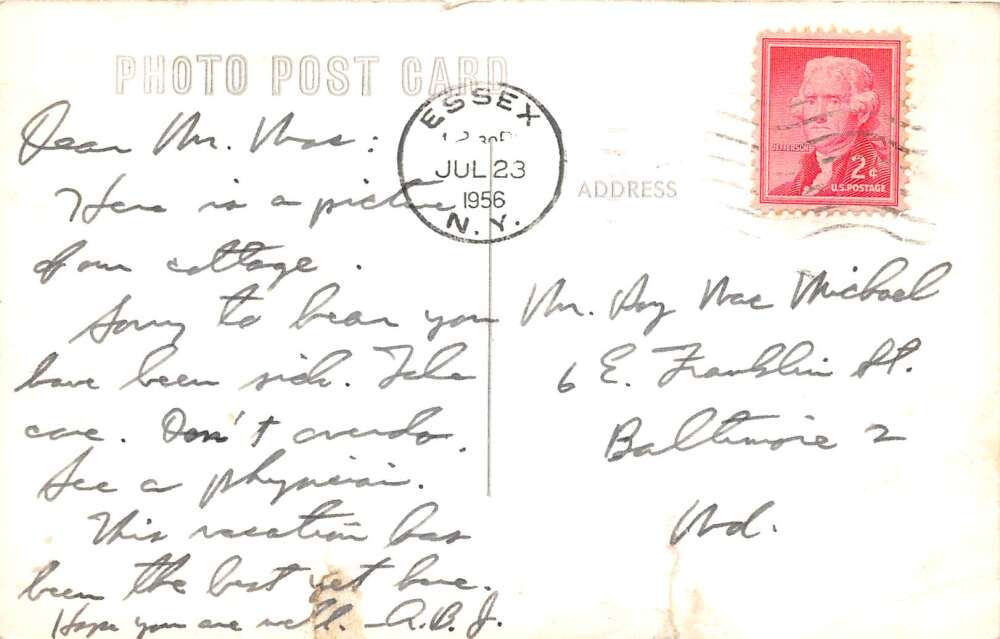 PHOTO POST CARD
ESSEX
12 30 P
JUL 23
1956
N.Y.
ADDRESS
JEFFERSON
2¢
U.S. POSTAGE
Dear Mr. Mac:
Here is a picture
of our cottage.
Sorry to hear you
have been sick. Take
care. Don't overdo.
See a physician.
This vacation has
been the best yet here.
Hope you are well. -A.B.J.
Mr. Roy Mac Michael
6 E. Franklin St.
Baltimore 2
Md.